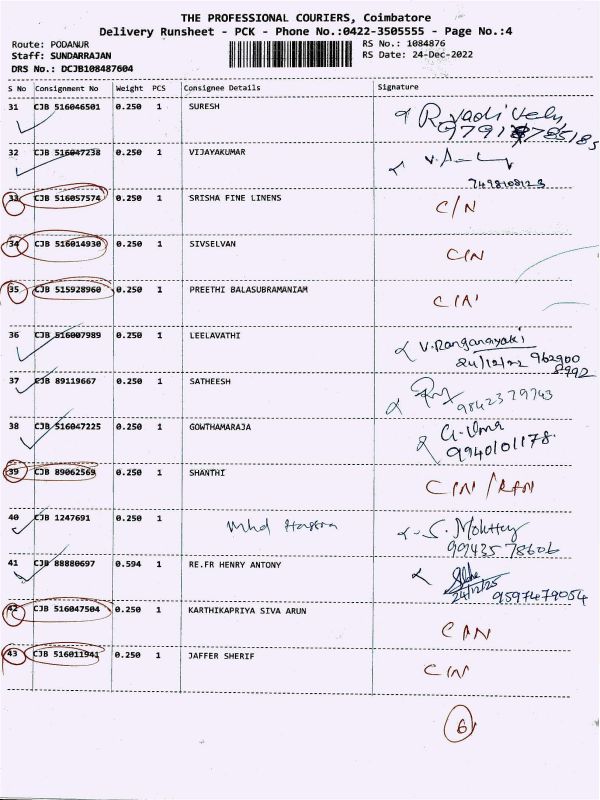 THE PROFESSIONAL COURIERS, Coimbatore
Delivery Runsheet - PCK - Phone No.:0422-3505555 - Page No.:4
Route: PODANUR RS No.: 1084876
Staff: SUNDARRAJAN RS Date: 24-Dec-2022
DRS No.: DCJB108487604
S No Consignment No Weight PCS Consignee Details Signature
31 CJB 516046501 0.250 1 SURESH
32 CJB 516047238 0.250 1 VIJAYAKUMAR
33 CJB 516057574 0.250 1 SRISHA FINE LINENS C/N
34 CJB 516014930 0.250 1 SIVSELVAN CIN
35 CJB 515928960 0.250 1 PREETHI BALASUBRAMANIAM CIN
36 CJB 516007989 0.250 1 LEELAVATHI V. Ranganayaki
24/12/22 962900
8992
37 CJB 89119667 0.250 1 SATHEESH
9842379743
38 CJB 516047225 0.250 1 GOWTHAMARAJA G. Uma
9940101178.
39 CJB 89062569 0.250 1 SHANTHI CIN / RAN
40 CJB 1247691 0.250 1 Mhd
9943578606
41 CJB 88880697 0.594 1 RE.FR HENRY ANTONY
24/12/25 9597479054
42 CJB 516047504 0.250 1 KARTHIKAPRIYA SIVA ARUN CAN
43 CJB 516011941 0.250 1 JAFFER SHERIF CIN
6